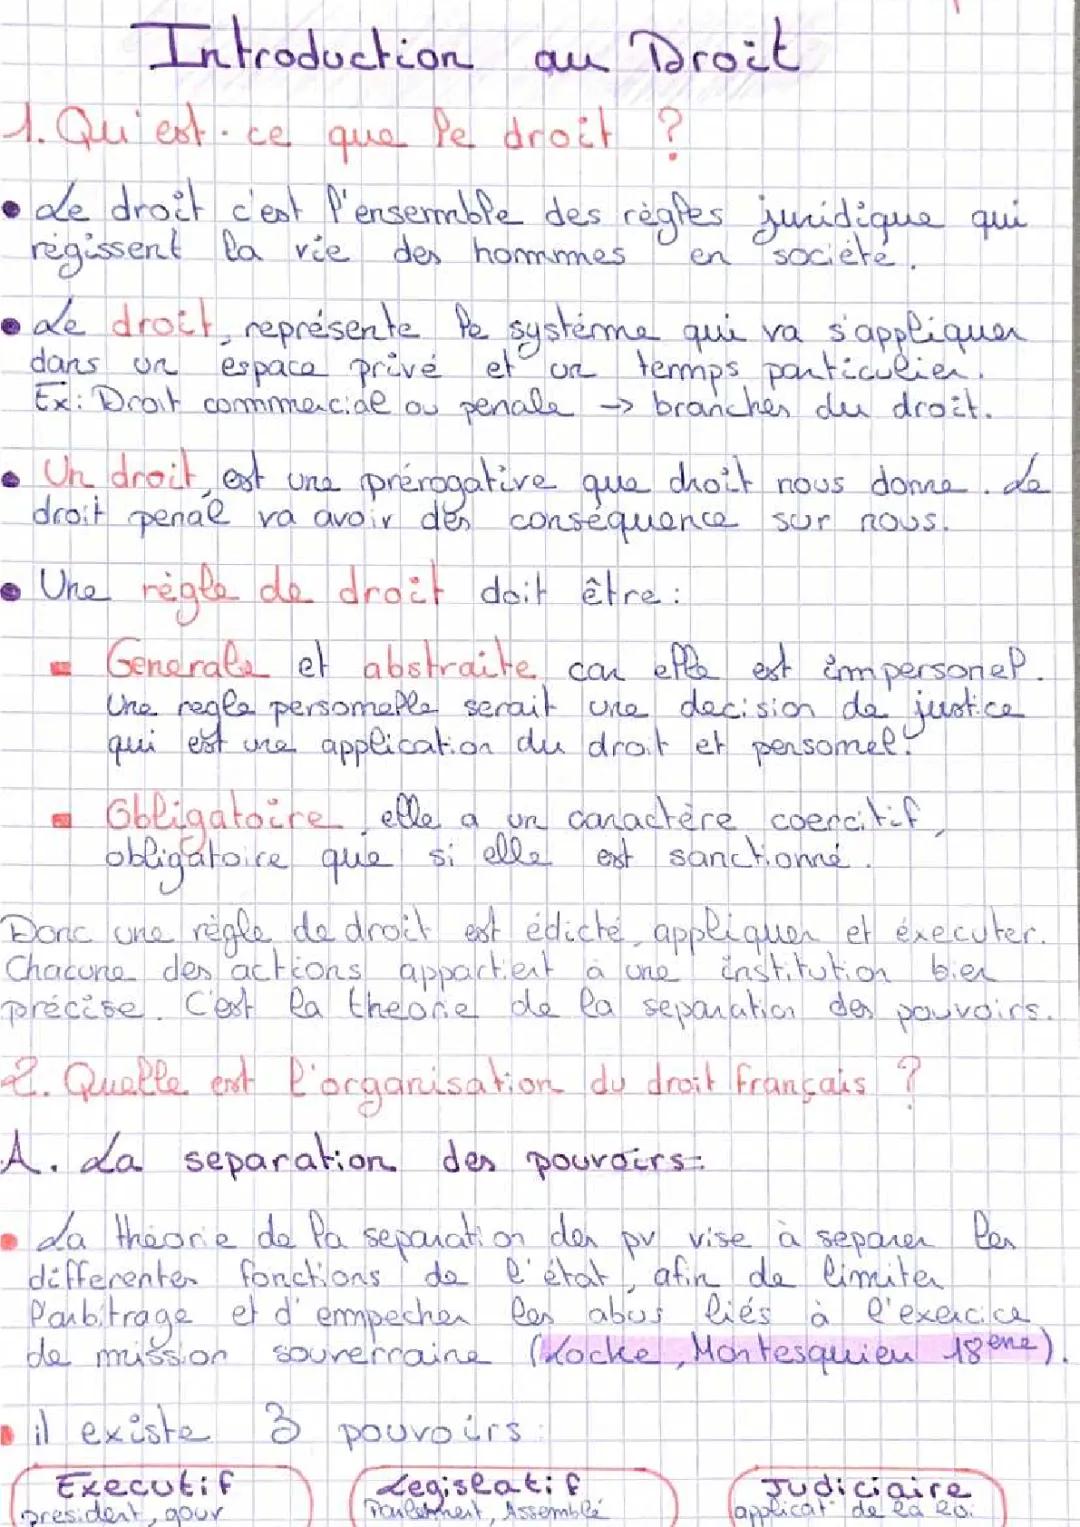 Introduction au Droit
1. Qu'est-ce que le droit ?
• Le droit c'est l'ensemble des règles juridique qui
régissent la vie des hommes en société.
• Le droit, représente le système qui va s'appliquer
dans un espace privé et un temps particulier.
Ex: Droit commercial ou penale → branches du droit.
• Un droit, est une prérogative que droit nous donne. Le
droit penal va avoir des conséquence sur nous.
• Une règle de droit doit être :
Generale et abstraite, car elle est impersonel.
Une regle personnelle serait une decision de justice
qui est une application du droit et personnel.
Obligatoire, elle a un caractère coercitif,
obligatoire que si elle est sanctionné.
Donc une règle de droit est édicté, appliquer et éxecuter.
Chacune des actions appartient à une institution bien
précise. C'est la theorie de la separation des pouvoirs.
2. Quelle est l'organisation du droit français ?
A. La separation des pouvoirs:
• La théorie de la separation des pv vise à separer les
differentes fonctions de l'état, afin de limiter
l'arbitrage et d'empecher les abus liés à l'exercice
de mission souverraine (Locke, Montesquieu 18ène).
• il existe 3 pouvoirs :
Executif Legislatif Judiciaire
president, gouv Parlement, Assemblé applicat° de la loi